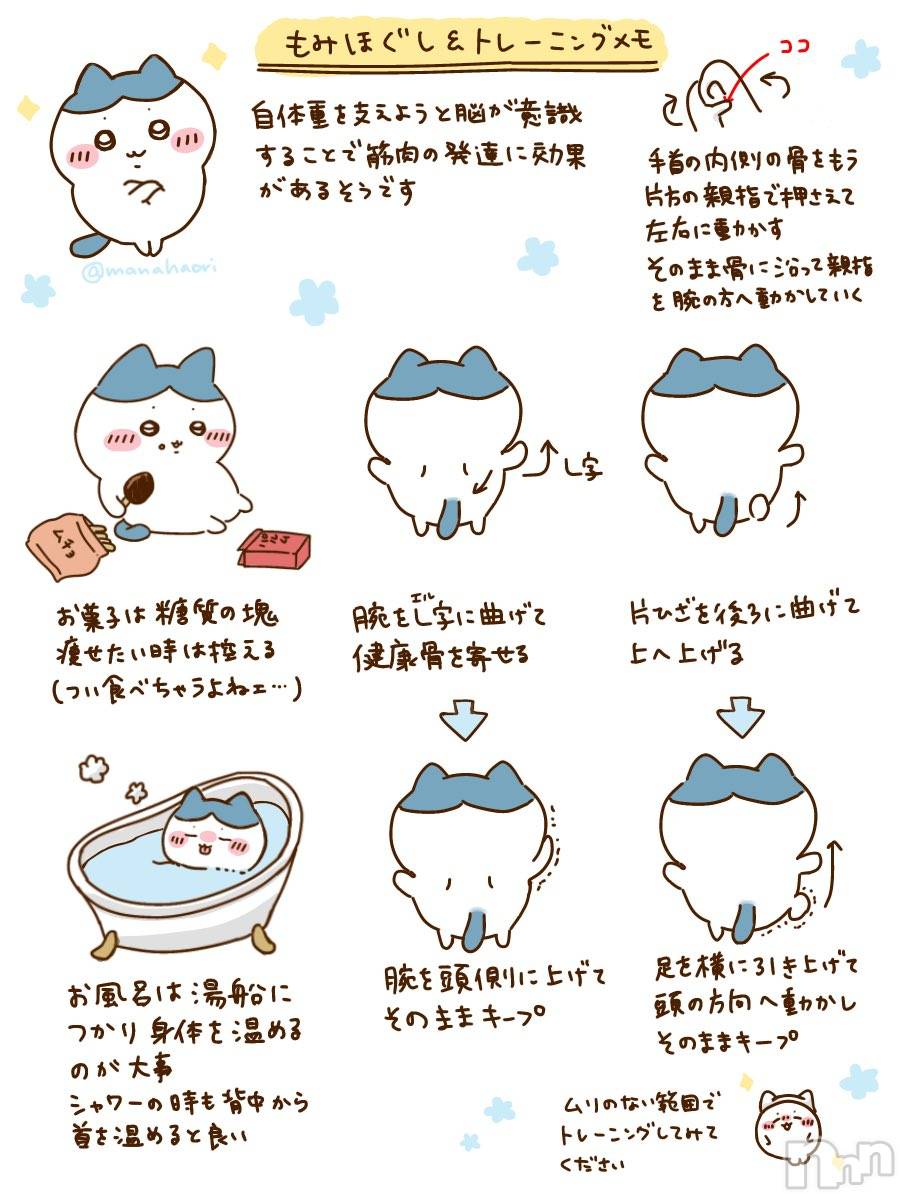 もみほぐし&トレーニングメモ
自体重を支えようと脳が意識
することで筋肉の発達に効果
があるそうです
@manahaori
ココ
手首の内側の骨をもう
片方の親指で押さえて
左右に動かす
そのまま骨に沿って親指
を腕の方へ動かしていく
ムチョ
お菓子は糖質の塊
痩せたい時は控える
(つい食べちゃうよねェ…)
L字
エル
腕をL字に曲げて
健康骨を寄せる
片ひざを後ろに曲げて
上へ上げる
お風呂は湯船に
つかり身体を温める
のが大事
シャワーの時も背中から
首を温めると良い
腕を頭側に上げて
そのままキープ
足を横に引き上げて
頭の方向へ動かし
そのままキープ
ムリのない範囲で
トレーニングしてみて
ください
nnn